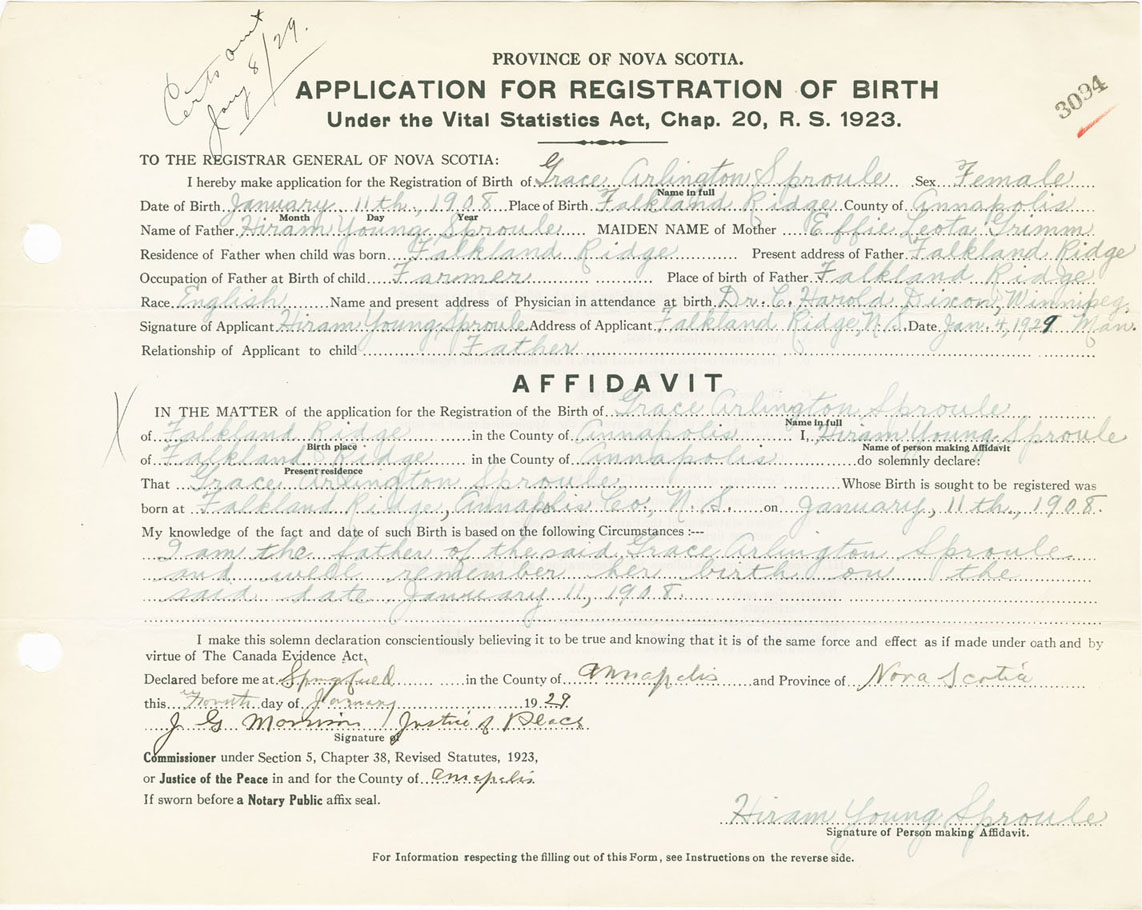 Certs sent
Jany 8/29.
PROVINCE OF NOVA SCOTIA.
APPLICATION FOR REGISTRATION OF BIRTH
3094
Under the Vital Statistics Act, Chap. 20, R. S. 1923.
TO THE REGISTRAR GENERAL OF NOVA SCOTIA:
I hereby make application for the Registration of Birth of Grace Arlington Sproule Sex Female
Name in full
Date of Birth January 11th, 1908 Place of Birth Falkland Ridge County of Annapolis
Month Day Year
Name of Father Hiram Young Sproule MAIDEN NAME of Mother Effie Leota Grimm
Residence of Father when child was born Falkland Ridge Present address of Father Falkland Ridge
Occupation of Father at Birth of child Farmer Place of birth of Father Falkland Ridge
Race English Name and present address of Physician in attendance at birth Dr. C. Harold Dixon, Winnipeg,
Signature of Applicant Hiram Young Sproule Address of Applicant Falkland Ridge, N.S. Date Jan. 4, 1929 Man.
Relationship of Applicant to child Father
AFFIDAVIT
X
IN THE MATTER of the application for the Registration of the Birth of Grace Arlington Sproule
Name in full
of Falkland Ridge in the County of Annapolis I, Hiram Young Sproule
Birth place Name of person making Affidavit
of Falkland Ridge in the County of Annapolis do solemnly declare:
Present residence
That Grace Arlington Sproule Whose Birth is sought to be registered was
born at Falkland Ridge, Annapolis Co., N.S. on January, 11th, 1908.
My knowledge of the fact and date of such Birth is based on the following Circumstances :---
I am the father of the said Grace Arlington Sproule
and well remember her birth on the
said date January 11, 1908.
I make this solemn declaration conscientiously believing it to be true and knowing that it is of the same force and effect as if made under oath and by
virtue of The Canada Evidence Act,
Declared before me at Springfield in the County of Annapolis and Province of Nova Scotia
this Fourth day of January 1929
J G Morrison Justice of Peace
Signature of
Commissioner under Section 5, Chapter 38, Revised Statutes, 1923,
or Justice of the Peace in and for the County of Annapolis
If sworn before a Notary Public affix seal.
Hiram Young Sproule
Signature of Person making Affidavit.
For Information respecting the filling out of this Form, see Instructions on the reverse side.